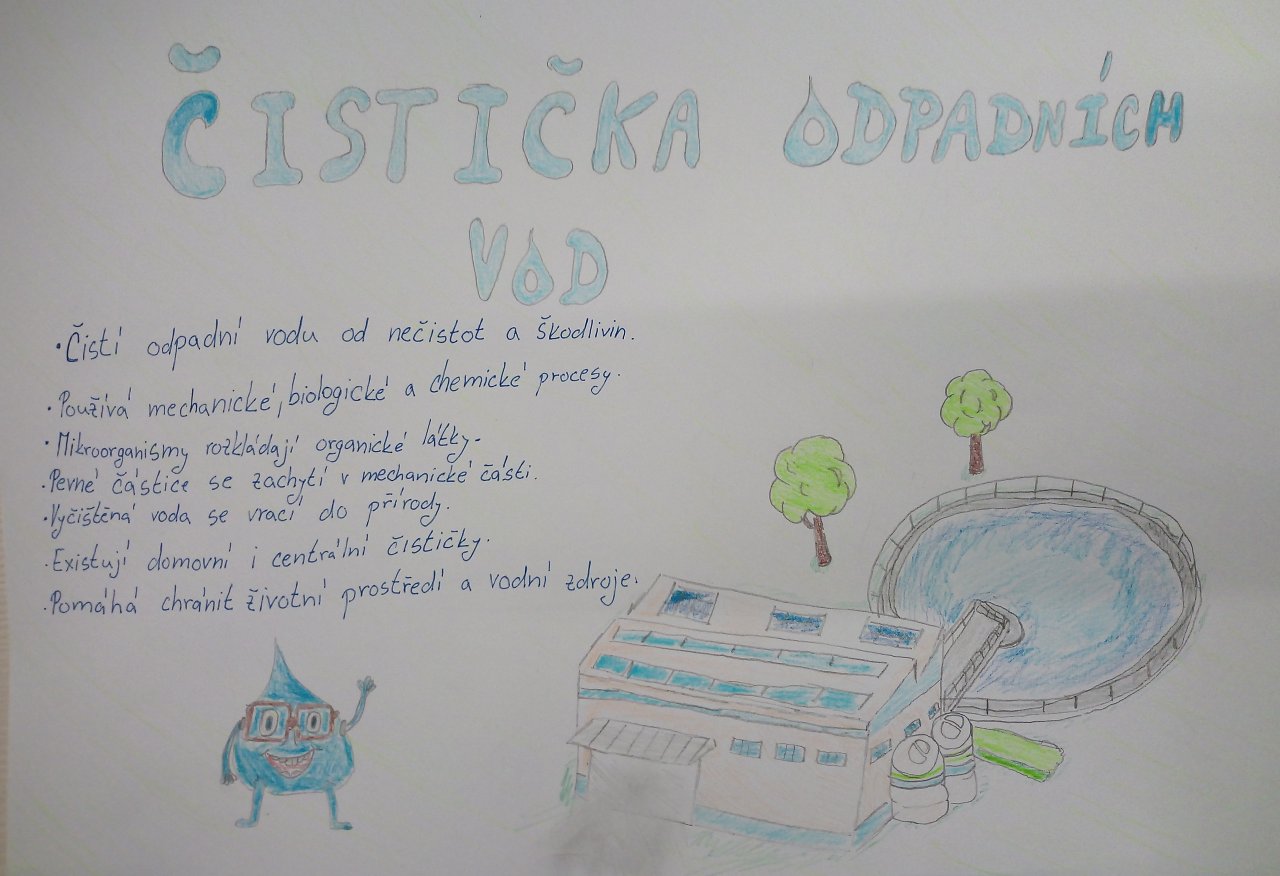 ČISTIČKA ODPADNÍCH
VOD
• Čistí odpadní vodu od nečistot a škodlivin.
• Používá mechanické, biologické a chemické procesy.
• Mikroorganismy rozkládají organické látky.
• Pevné částice se zachytí v mechanické části.
• Vyčištěná voda se vrací do přírody.
• Existují domovní i centrální čističky.
• Pomáhá chránit životní prostředí a vodní zdroje.